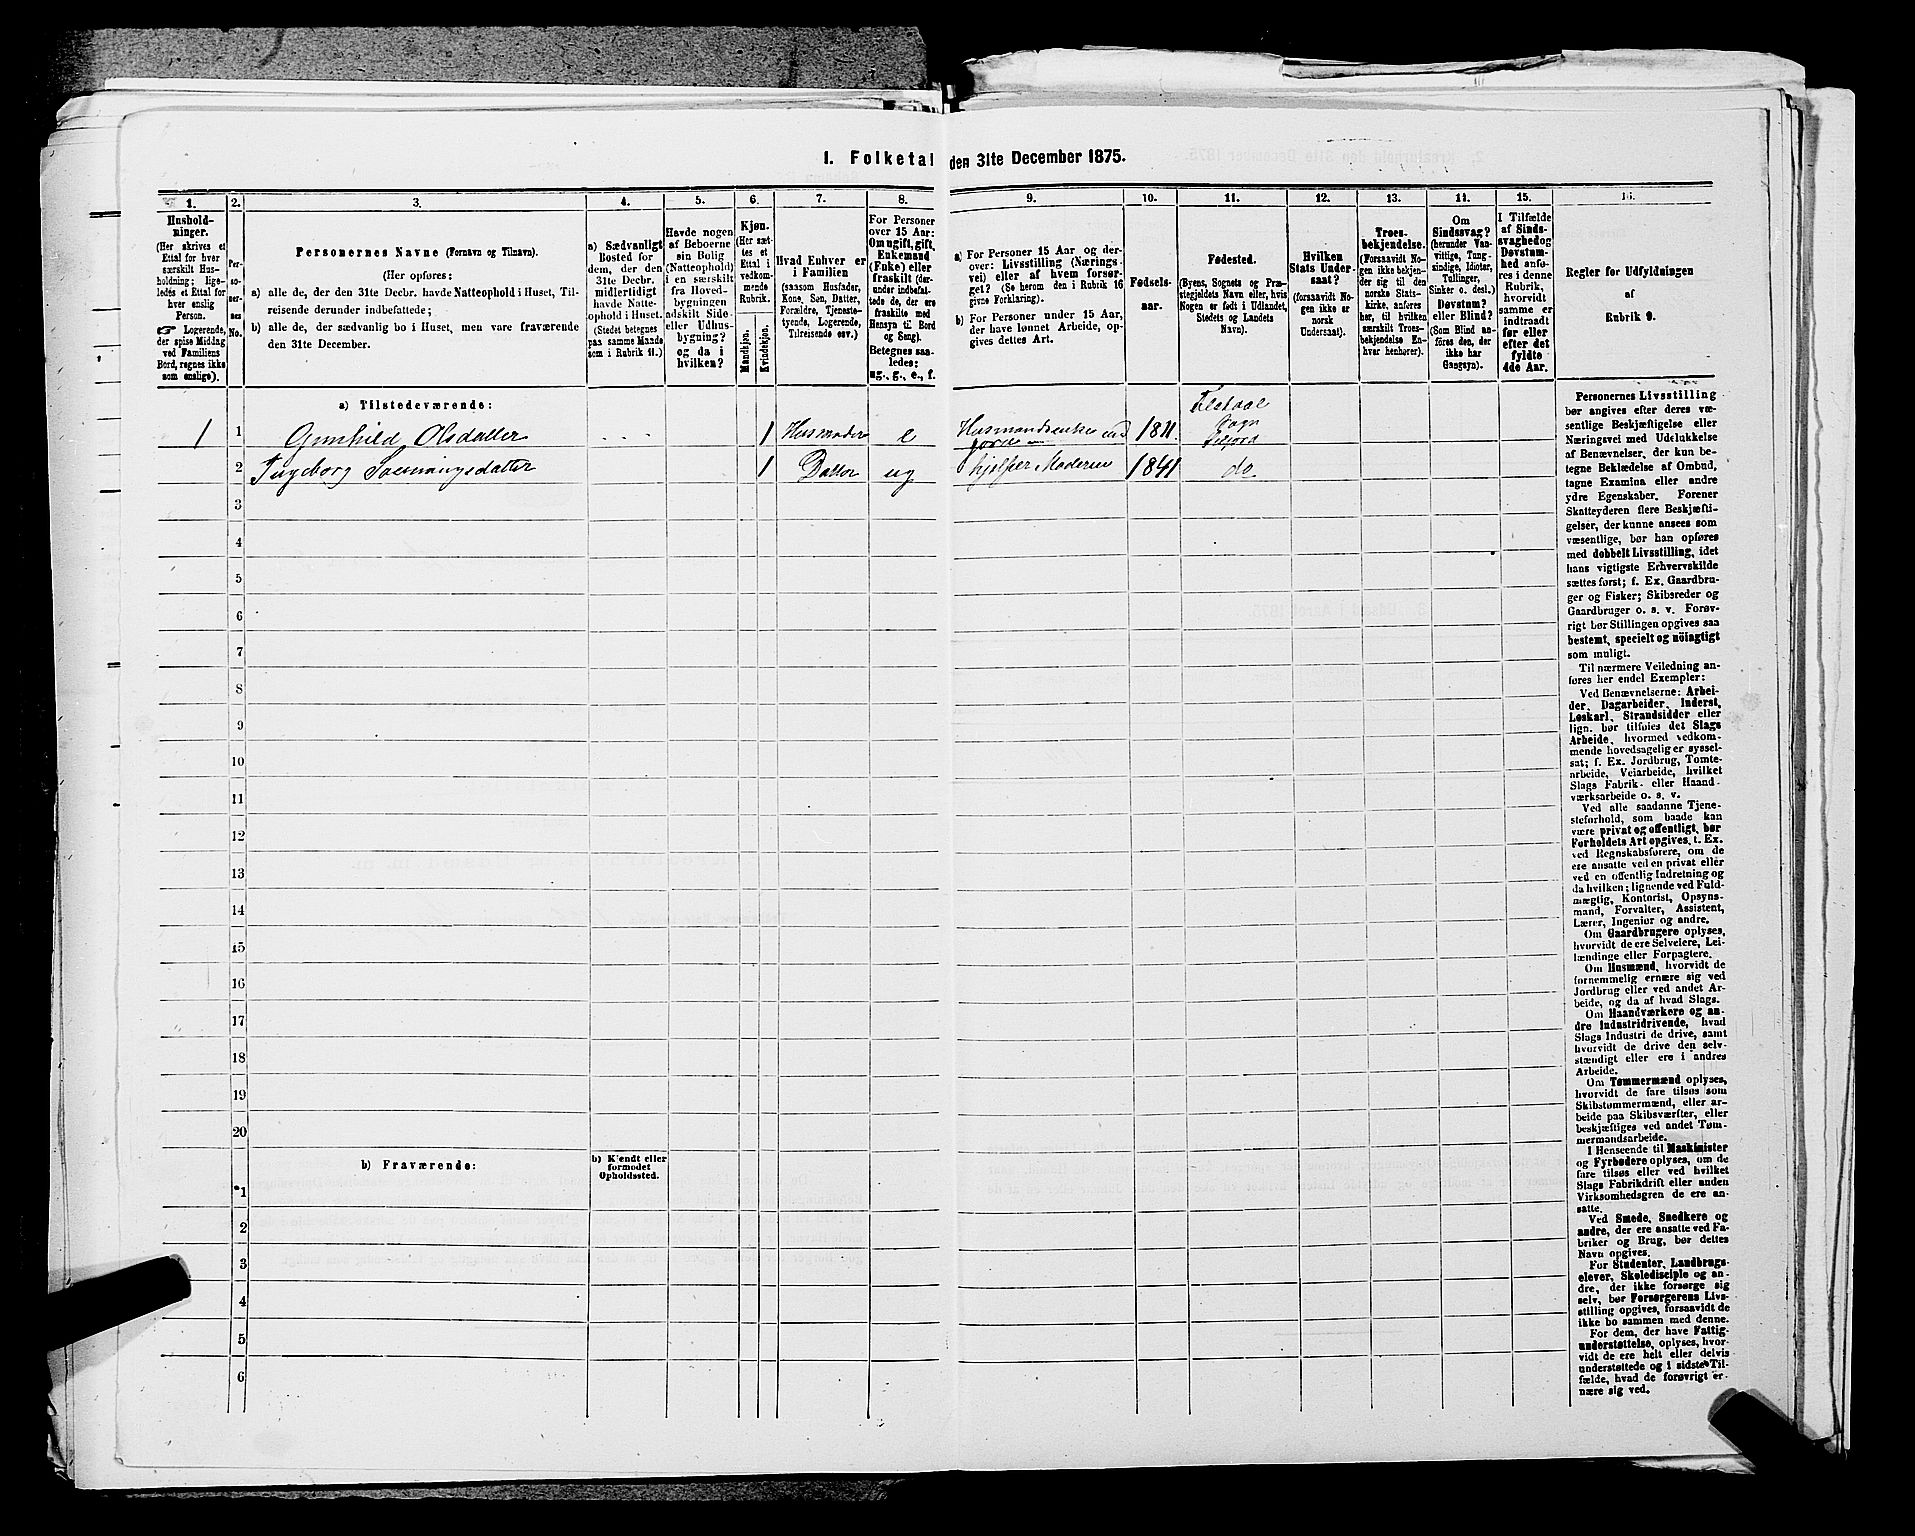 1. Folketal den 31te December 1875.
1.
Hushold-
ninger.
(Her skrives et
Ettal for hver
særskilt Hus-
holdning; lige-
ledes et Ettal for
hver enslig
Person.
☞ Logerende,
der spise Middag
ved Familiens
Bord, regnes ikke
som enslige).
2.
Per-
so-
ner-
nes
No.
3.
Personernes Navne (Fornavn og Tilnavn).
(Her opføres:
a) alle de, der den 31te Decbr. havde Natteophold i Huset, Til-
reisende derunder indbefattede;
b) alle de, der sædvanlig bo i Huset, men vare fraværende
den 31te December.
4.
a) Sædvanligt
Bosted for
dem, der den
31te Decbr.
midlertidigt
havde Natte-
ophold i Huset.
(Stedet betegnes
paa samme Maade
som i Rubrik 11.)
5.
Havde nogen
af Beboerne
sin Bolig
(Natteophold)
i en særskilt
fra Hoved-
bygningen
adskilt Side-
eller Udhus-
bygning?
og da i
hvilken?
6.
Kjøn.
(Her sæt-
tes et
Ettal i
vedkom-
mende
Rubrik.
Mandkjøn.
Kvindekjøn.
7.
Hvad Enhver er
i Familien
(saasom Husfader,
Kone, Søn, Datter,
Forældre, Tjeneste-
tyende, Logerende,
Tilreisende osv.)
8.
For Personer
over 15 Aar:
Om ugift, gift,
Enkemand
(Enke) eller
fraskilt (der-
under indbefat-
tede de, der ere
fraskilte med
Hensyn til Bord
og Seng).
Betegnes saa-
ledes:
ug., g., e., f.
9.
a) For Personer 15 Aar og der-
over: Livsstilling (Nærings-
vei) eller af hvem forsør-
get? (Se herom den i Rubrik 16
givne Forklaring).
b) For Personer under 15 Aar,
der have lønnet Arbeide, op-
gives dettes Art.
10.
Fødsels-
aar.
11.
Fødested.
(Byens, Sognets og Præ-
stegjeldets Navn eller, hvis
Nogen er født i Udlandet,
Stedets og Landets
Navn).
12.
Hvilken
Stats Under-
saat?
(forsaavidt No-
gen ikke er
norsk
Undersaat).
13.
Troes-
bekjendelse.
(Forsaavidt No-
gen ikke bekjen-
der sig til den
norske Stats-
kirke, anføres
her, til hvilken
særskilt Troes-
bekjendelse En-
hver henhører).
14.
Om
Sindssvag?
(herunder Van-
vittige, Tung-
sindige, Idioter,
Tullinger,
Sinker o. desl.)
Døvstum?
eller Blind?
(Som Blind an-
føres den, der
ikke har
Gangsyn).
15.
I Tilfælde
af Sinds-
svaghed og
Døvstum-
hed anfø-
res i denne
Rubrik,
hvorvidt
samme er
indtraadt
før eller
efter det
fyldte
4de Aar.
16.
Regler for Udfyldningen
af
Rubrik 9.
a) Tilstedeværende:
1 1 Gunhild Olsdatter . . . 1 Husmoder e Husmandsenke med jord 1811. Flatdal Sogn
2 Ingeborg Sveinungsdatter 1 Datter ug hjelper Moderen 1841 do
3
4
5
6
7
8
9
10
11
12
13
14
15
16
17
18
19
20
b) Fraværende:
b) Kjendt eller
formodet
Opholdssted.
1
2
3
4
5
6
Personernes Livsstilling
bør angives efter deres væ-
sentlige Beskjæftigelse eller
Næringsvei med Udelukkelse
af Benævnelser, der kun be-
tegne Beklædelse af Ombud,
tagne Examina eller andre
ydre Egenskaber. Forener
Skatteyderen flere Beskjæfti-
gelser, der kunne ansees som
væsentlige, bør han opføres
med dobbelt Livsstilling, idet
hans vigtigste Erhvervskilde
sættes først; f. Ex. Gaardbru-
ger og Fisker; Skibsreder og
Gaardbruger o. s. v. Forøv-
rigt bør Stillingen opgives saa
bestemt, specielt og nöiagtigt
som muligt.
Til nærmere Veiledning an-
føres her endel Exempler:
Ved Benævnelserne: Arbei-
der, Dagarbeider, Inderst,
Løskarl, Strandsidder eller
lign. bør tilføies det Slags
Arbeide, hvormed vedkom-
mende hovedsagelig er syssel-
sat; f. Ex. Jordbrug, Tomte-
arbeide, Veiarbeide, hvilket
Slags Fabrik- eller Haand-
værksarbeide o. s. v.
Ved alle saadanne Tjene-
steforhold, som baade kan
være privat og offentligt, bør
Forholdets Art opgives, t. Ex.
ved Regnskabsførere, om de
ere ansatte ved en privat eller
ved en offentlig Indretning og
da hvilken; lignende ved Fuld-
mægtig, Kontorist, Opsyns-
mand, Forvalter, Assistent,
Lærer, Ingeniør og andre.
Om Gaardbrugere oplyses,
hvorvidt de ere Selveiere, Lei-
lændinge eller Forpagtere.
Om Husmænd, hvorvidt de
fornemmelig ernære sig ved
Jordbrug eller ved andet Ar-
beide, og da af hvad Slags.
Om Haandværkere og an-
dre Industridrivende, hvad
Slags Industri de drive, samt
hvorvidt de drive den selv-
stændigt eller ere i andres
Arbeide.
Om Tømmermænd oplyses,
hvorvidt de fare tilsøs som
Skibstømmermænd, eller ar-
beide paa Skibsværfter, eller
beskjæftiges ved andet Tøm-
mermandsarbeide.
I Henseende til Maskinister
og Fyrbødere oplyses, om de
fare tilsøs eller ved hvilket
Slags Fabrikdrift eller anden
Virksomhedsgren de ere an-
satte.
Ved Smede, Snedkere og
andre, der ere ansatte ved Fa-
briker og Brug, bør dettes
Navn opgives.
For Studenter, Landbrugs-
elever, Skoledisciple og an-
dre, der ikke forsørge sig
selv, bør Forsørgerens Livs-
stilling opgives, forsaavidt de
ikke bo sammen med denne.
For dem, der have Fattig-
understøttelse, oplyses, hvor-
vidt de ere helt eller delvis
understøttede og i sidste Til-
fælde, hvad de forøvrigt er-
nære sig ved.